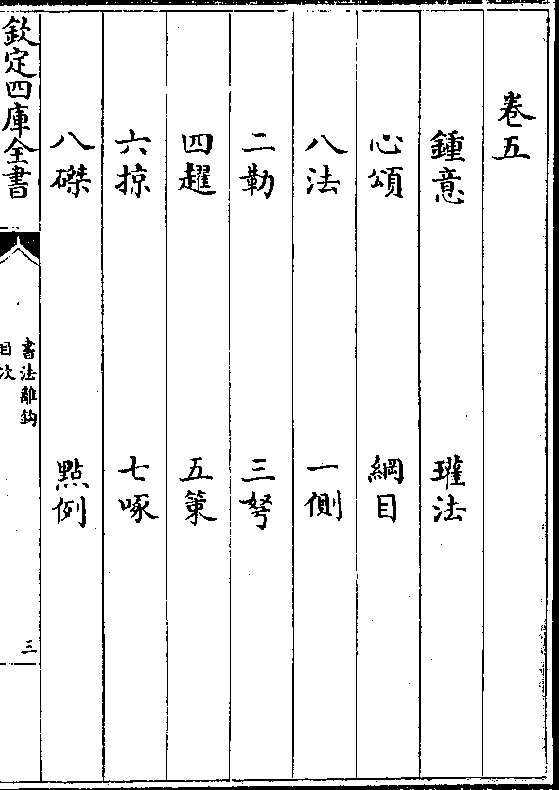 卷五
鍾意 瓘法
心頌 綱目
八法 一側
二勒 三弩
四趯 五策
六掠 七啄
八磔 點例
欽定四庫全書
書法離鈎
目次
三